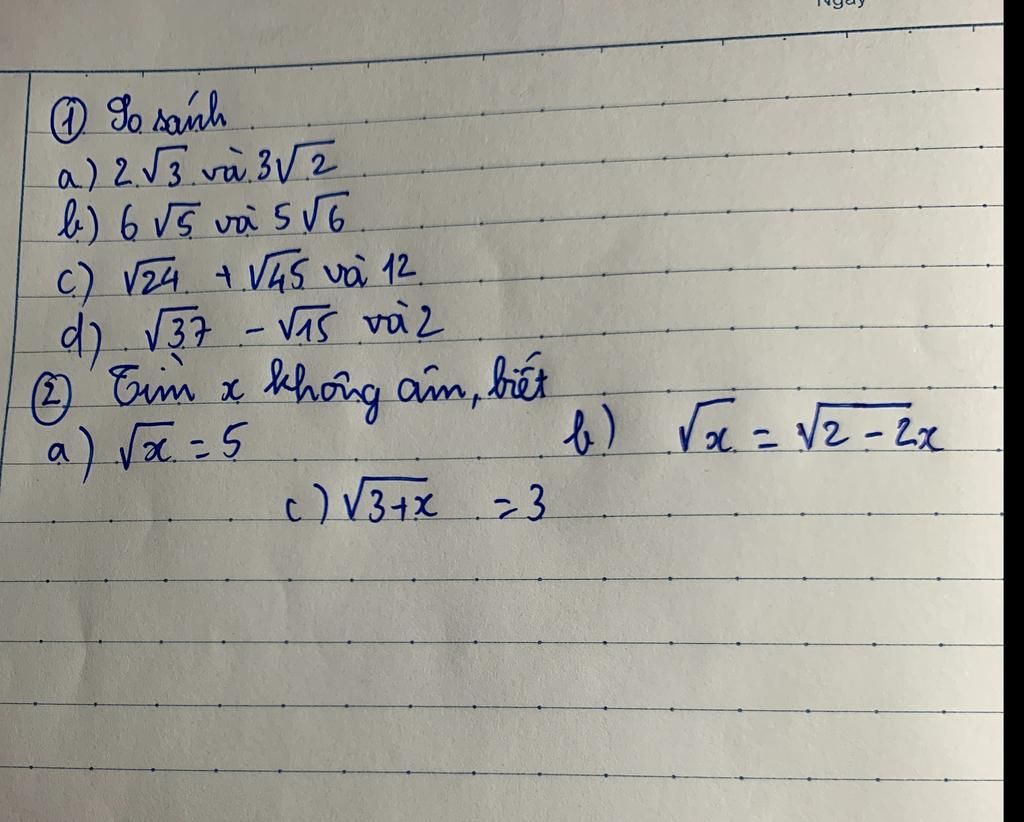 Ngày
① So sánh
a) 2√3 và 3√2
b) 6√5 và 5√6
c) √24 + √45 và 12
d) √37 - √15 và 2
② Tìm x không âm, biết
a) √x = 5 b) √x = √2-2x
c) √3+x = 3